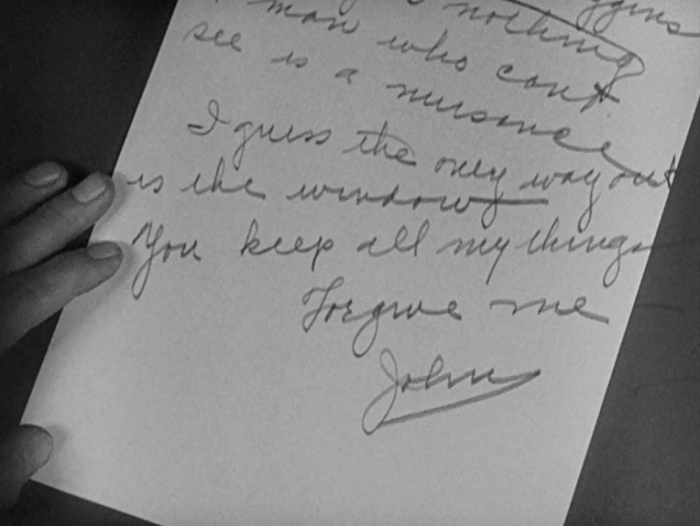 nothing
man who cant
see is a nuisance
I guess the only way out
is the window
You keep all my things
Forgive me
John